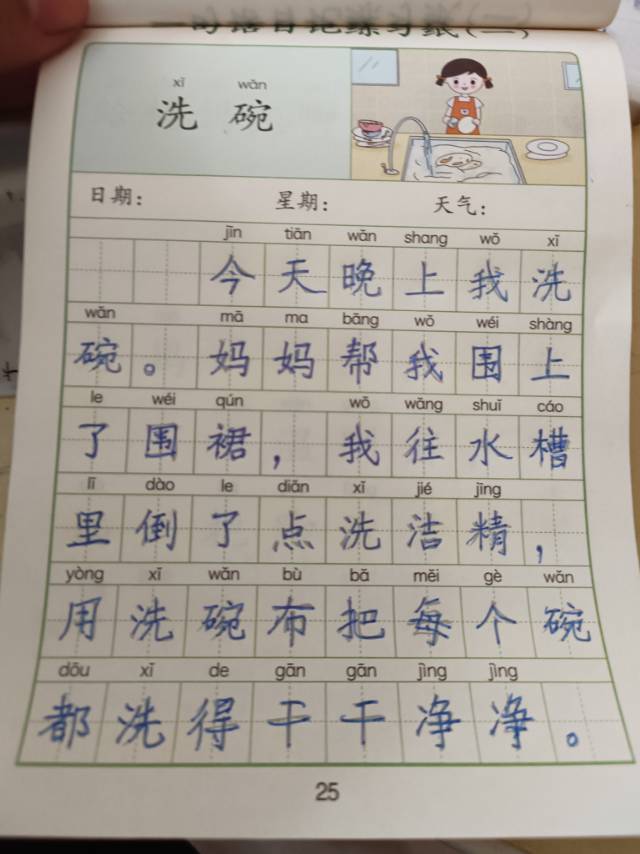 一句话日记练习纸(二)
xǐ wǎn
洗 碗
日期： 星期： 天气：
jīn tiān wǎn shang wǒ xǐ
今天晚上我洗
wǎn mā ma bāng wǒ wéi shàng
碗。妈妈帮我围上
le wéi qún wǒ wǎng shuǐ cáo
了围裙，我往水槽
lǐ dào le diǎn xǐ jié jīng
里倒了点洗洁精，
yòng xǐ wǎn bù bǎ měi gè wǎn
用洗碗布把每个碗
dōu xǐ de gān gān jìng jìng
都洗得干干净净。
25